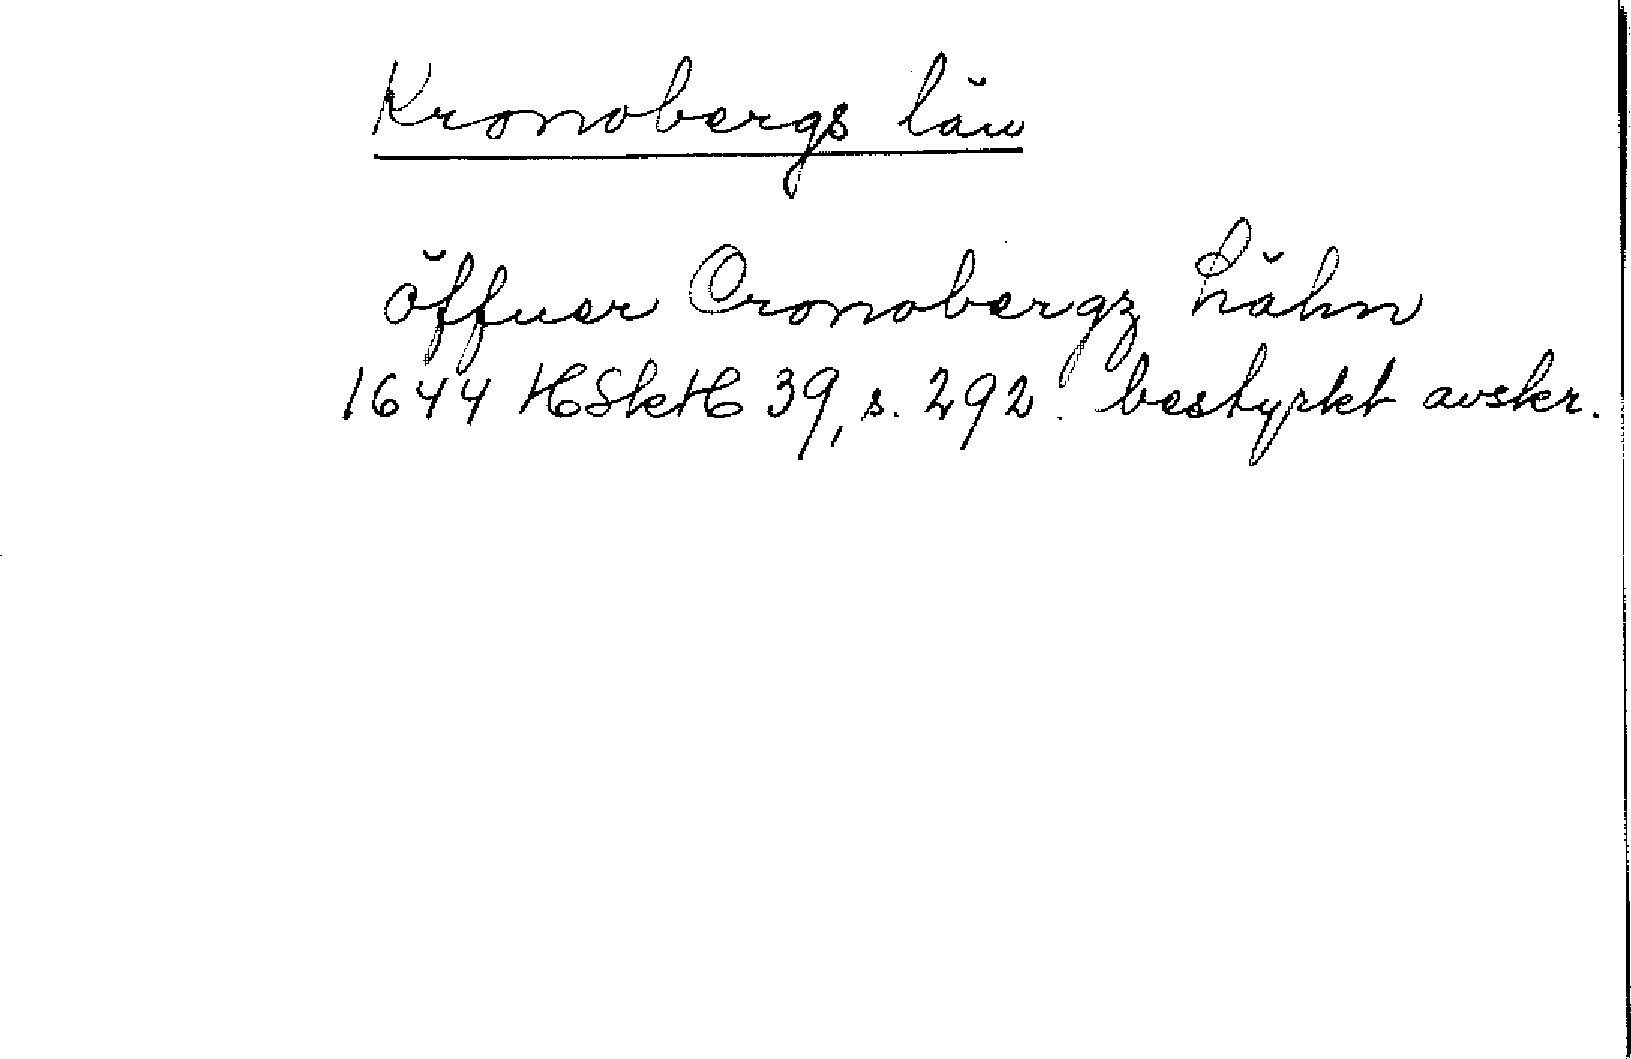 Kronobergs län
öffuer Cronobergz Lähn
1644 HSkH 39, s. 292. bestyrkt avskr.